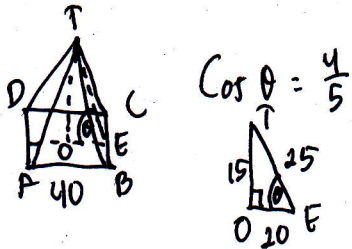 T
D
C
O
θ
E
A
40
B
Cos θ = 4/5
T
15
25
θ
O
20
E